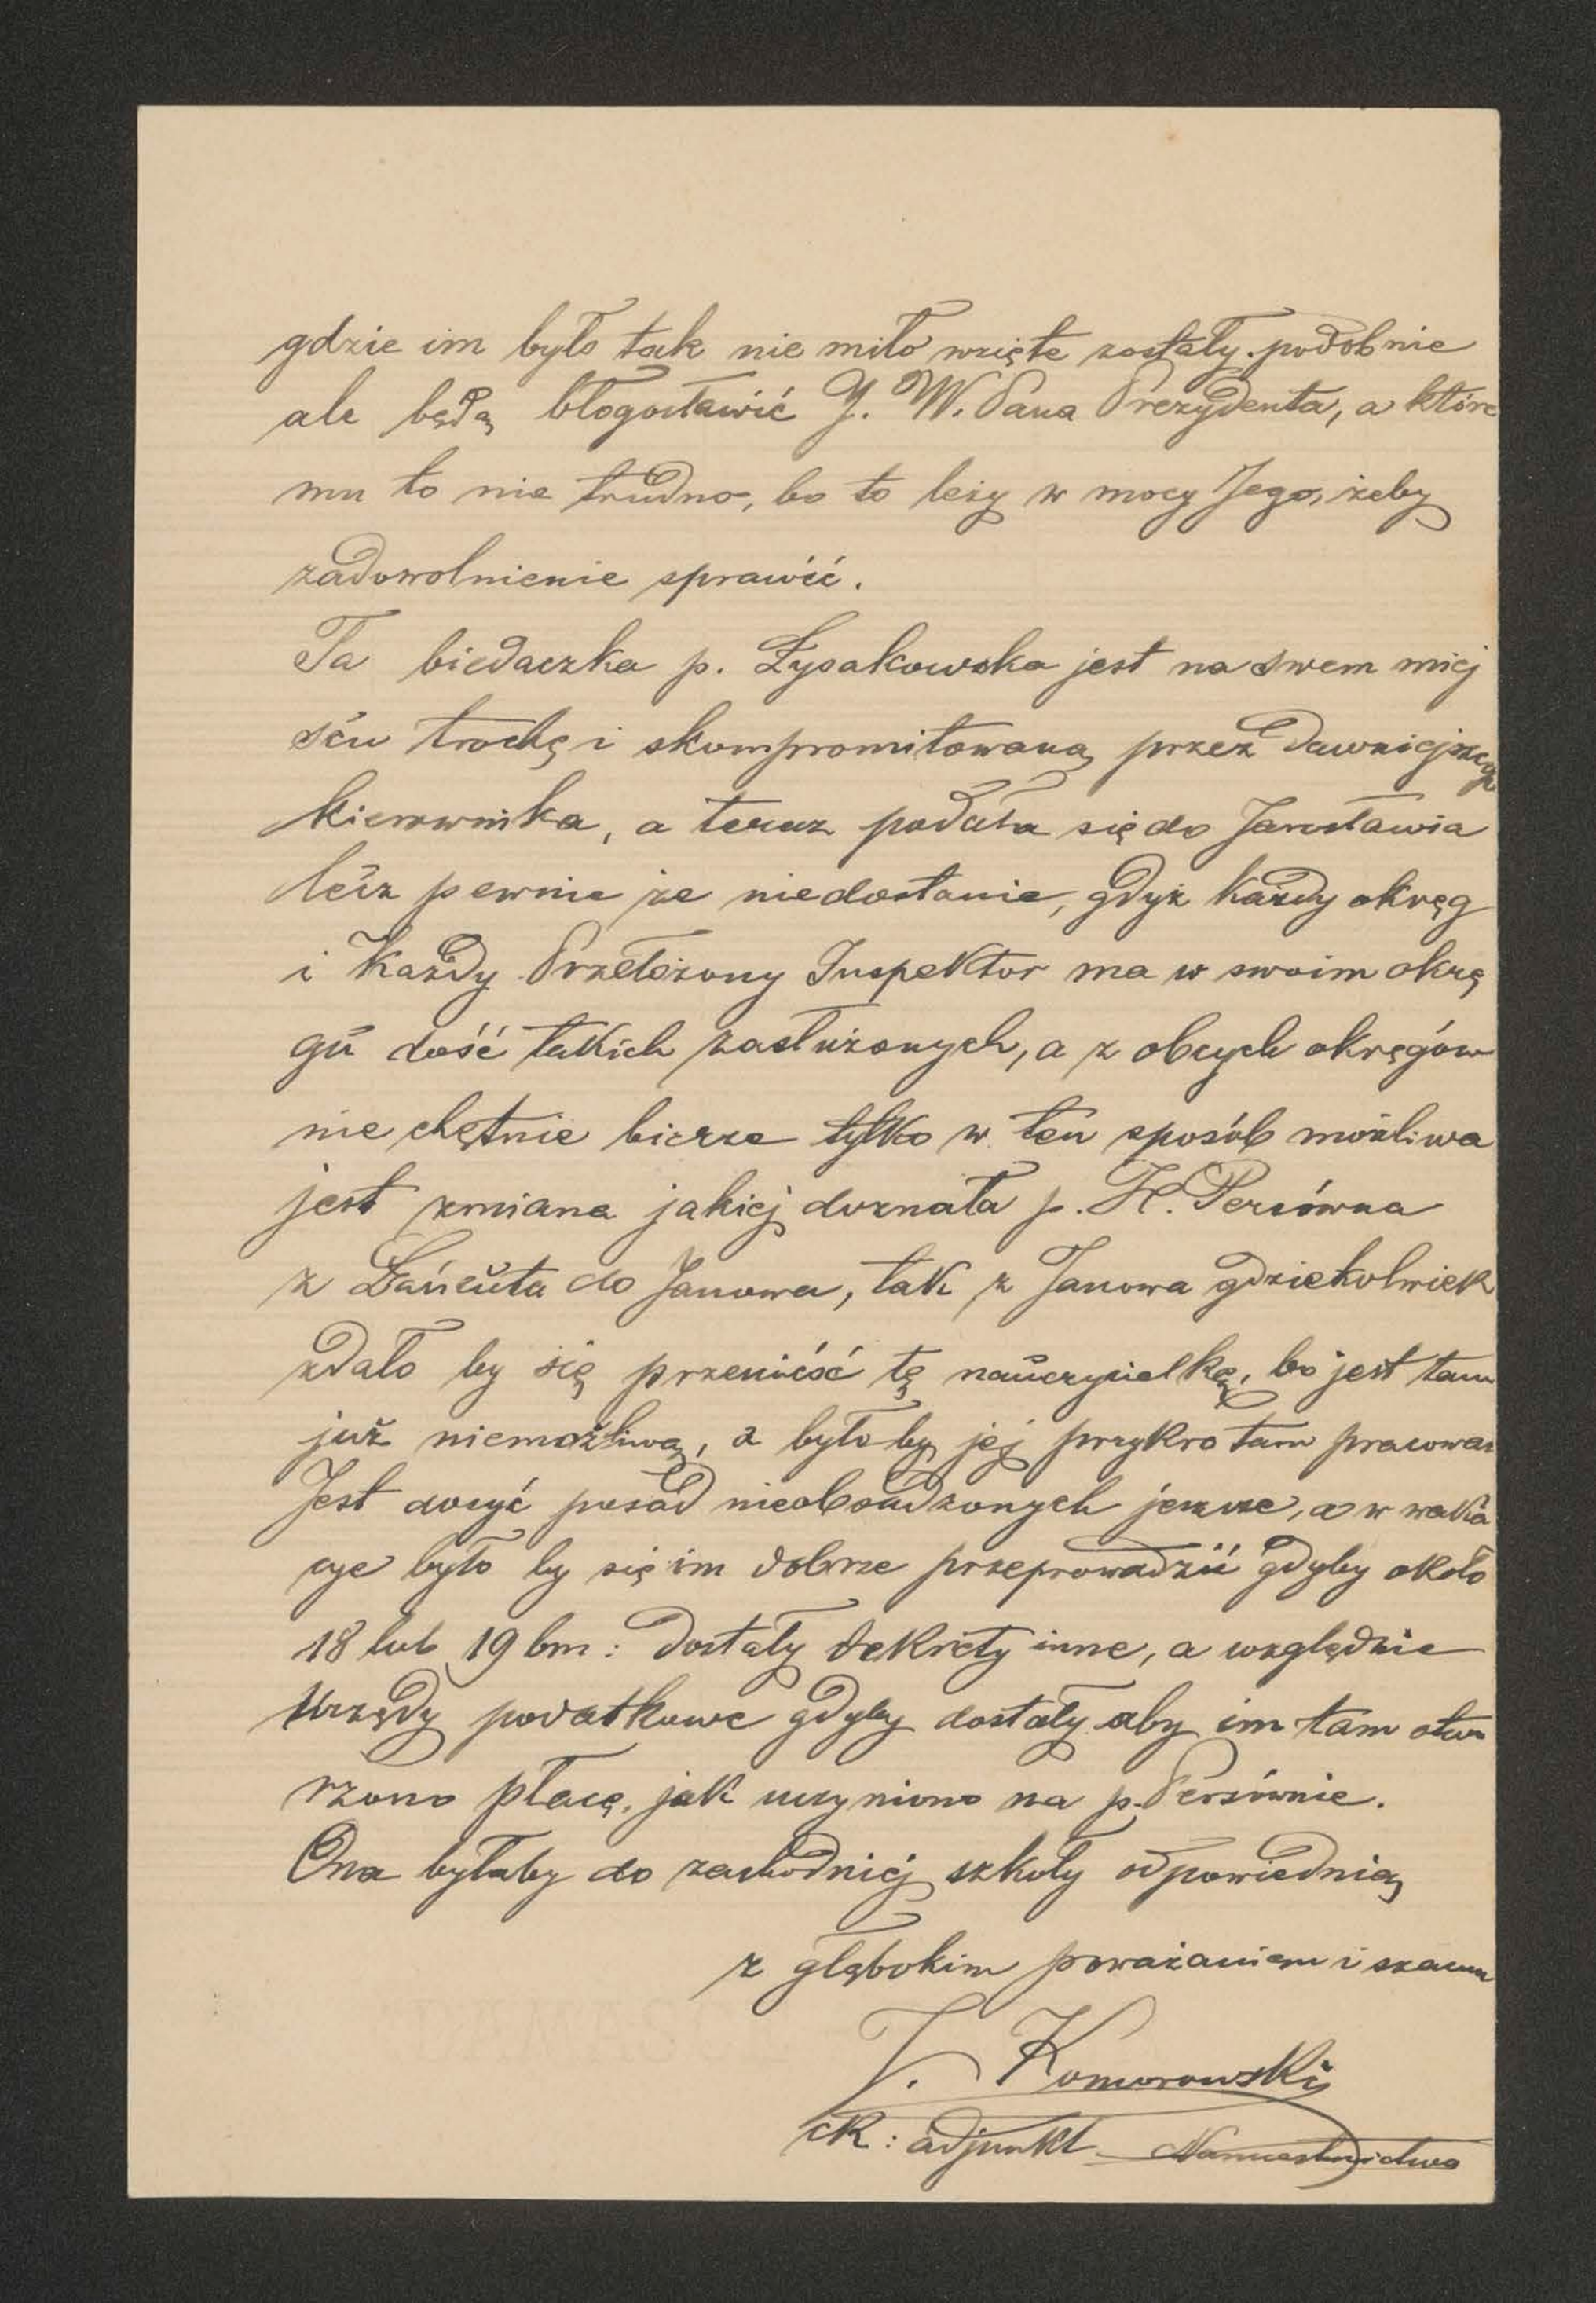 gdzie im było tak nie miło wzięte zostały. podobnie
ale będą błogosławić J. W. Pana Prezydenta, a które
mu to nie trudno, bo to leży w mocy Jego, żeby
zadowolnienie sprawić.
Ta biedaczka p. Łysakowska jest na swem miej
scu trochę i skompromitowaną przez dawniejszego
kierownika, a teraz podała się do Jarosławia
lecz pewnie że niedostanie, gdyż każdy okręg
i Każdy Przełożony Inspektor ma w swoim okrę
gu dość takich zasłużonych, a z obcych okręgów
nie chętnie bierze tylko w ten sposób możliwa
jest zmiana jakiej doznała p. H. Persówna
z Łańcuta do Janowa, tak z Janowa gdziekolwiek
zdało by się przenieść tę nauczycielkę, bo jest tam
już niemożliwą, a było by jej przykro tam pracować
Jest dosyć posad nieobsadzonych jeszcze, a w waka
cye było by się im dobrze przeprowadzić gdyby około
18 lub 19 bm: dostały dekrety inne, a względnie
Urzędy podatkowe gdyby dostały aby im tam otwo
rzono płacę, jak uczyniono na p. Persównie.
Ona byłaby do zachodniej szkoły odpowiednią
z głębokim poważaniem i szacun
Komorowski
ck: adjunkt Namiestnictwa